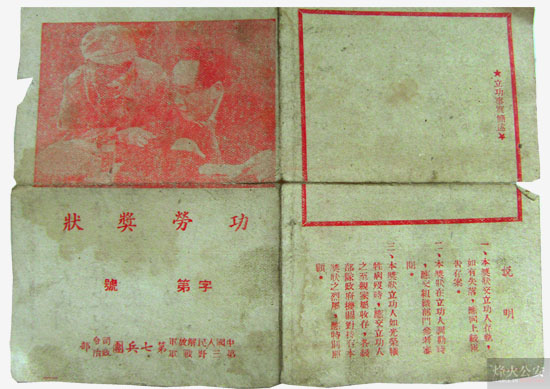 ★立功事實簡述★
說明
一、本獎狀交立功人存執，
如有失落，應向上級報
告存案。
二、本獎狀在立功人調動時
，應交組織部門登記審
閱。
三、本獎狀立功人如光榮犧
牲病歿時，應交立功人
之至親家屬收存，各級
部隊政府機關對持有本
獎狀之烈屬，應特別照
顧。
功勞獎狀
字第 號
中國人民解放軍
第三野戰軍
第七兵團
司令
政治
部
烽火公